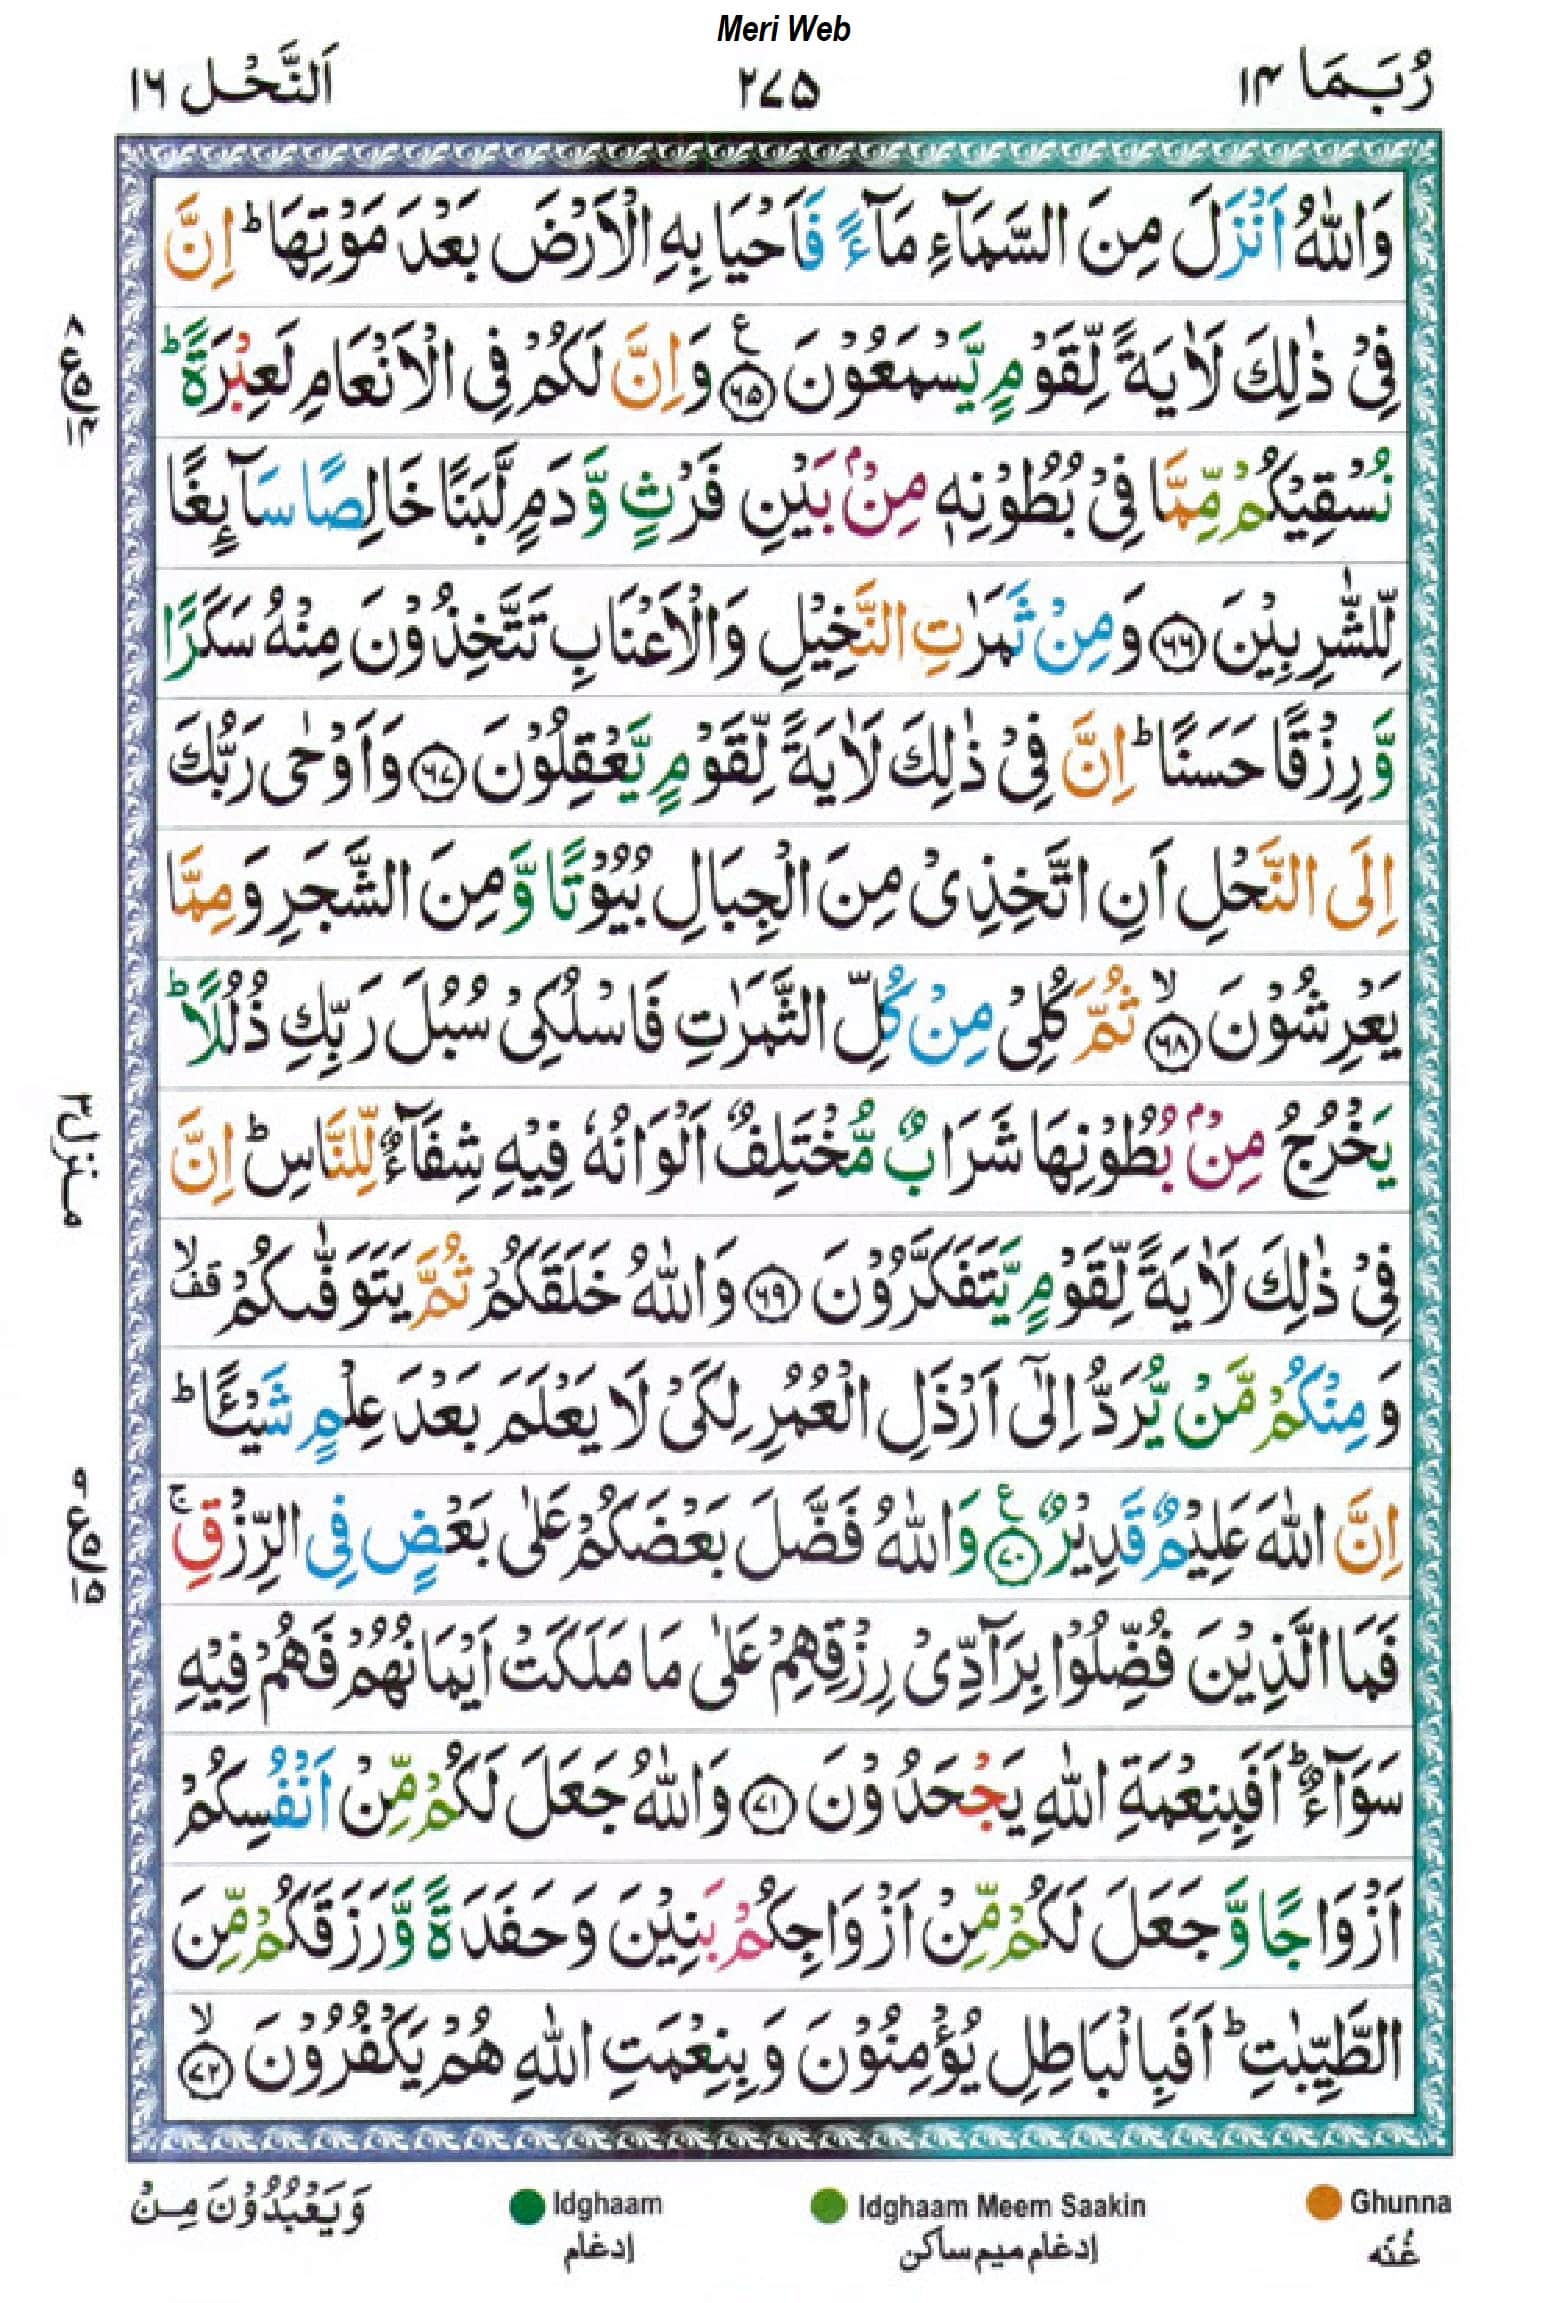 Meri Web
رُبَمَا ۱۴
۲۷۵
اَلنَّحْل ۱۶
وَاللّٰهُ اَنْزَلَ مِنَ السَّمَآءِ مَآءً فَاَحْيَا بِهِ الْاَرْضَ بَعْدَ مَوْتِهَا ؕ اِنَّ
فِيْ ذٰلِكَ لَاٰيَةً لِّقَوْمٍ يَّسْمَعُوْنَ ﴿۶۵﴾ؑ وَاِنَّ لَكُمْ فِي الْاَنْعَامِ لَعِبْرَةً ؕ
نُسْقِيْكُمْ مِّمَّا فِيْ بُطُوْنِهٖ مِنْۢ بَيْنِ فَرْثٍ وَّدَمٍ لَّبَنًا خَالِصًا سَآئِغًا
لِّلشّٰرِبِيْنَ ﴿۶۶﴾ وَمِنْ ثَمَرٰتِ النَّخِيْلِ وَالْاَعْنَابِ تَتَّخِذُوْنَ مِنْهُ سَكَرًا
وَّرِزْقًا حَسَنًا ؕ اِنَّ فِيْ ذٰلِكَ لَاٰيَةً لِّقَوْمٍ يَّعْقِلُوْنَ ﴿۶۷﴾ وَاَوْحٰى رَبُّكَ
اِلَى النَّحْلِ اَنِ اتَّخِذِيْ مِنَ الْجِبَالِ بُيُوْتًا وَّمِنَ الشَّجَرِ وَمِمَّا
يَعْرِشُوْنَ ﴿۶۸﴾ۙ ثُمَّ كُلِيْ مِنْ كُلِّ الثَّمَرٰتِ فَاسْلُكِيْ سُبُلَ رَبِّكِ ذُلُلًا ؕ
يَخْرُجُ مِنْۢ بُطُوْنِهَا شَرَابٌ مُّخْتَلِفٌ اَلْوَانُهٗ فِيْهِ شِفَآءٌ لِّلنَّاسِ ؕ اِنَّ
فِيْ ذٰلِكَ لَاٰيَةً لِّقَوْمٍ يَّتَفَكَّرُوْنَ ﴿۶۹﴾ وَاللّٰهُ خَلَقَكُمْ ثُمَّ يَتَوَفّٰىكُمْ ۙ قف
وَمِنْكُمْ مَّنْ يُّرَدُّ اِلٰٓى اَرْذَلِ الْعُمُرِ لِكَيْ لَا يَعْلَمَ بَعْدَ عِلْمٍ شَيْـًٔا ؕ
اِنَّ اللّٰهَ عَلِيْمٌ قَدِيْرٌ ﴿۷۰﴾ؑ وَاللّٰهُ فَضَّلَ بَعْضَكُمْ عَلٰى بَعْضٍ فِي الرِّزْقِ ۚ
فَمَا الَّذِيْنَ فُضِّلُوْا بِرَآدِّيْ رِزْقِهِمْ عَلٰى مَا مَلَكَتْ اَيْمَانُهُمْ فَهُمْ فِيْهِ
سَوَآءٌ ؕ اَفَبِنِعْمَةِ اللّٰهِ يَجْحَدُوْنَ ﴿۷۱﴾ وَاللّٰهُ جَعَلَ لَكُمْ مِّنْ اَنْفُسِكُمْ
اَزْوَاجًا وَّجَعَلَ لَكُمْ مِّنْ اَزْوَاجِكُمْ بَنِيْنَ وَحَفَدَةً وَّرَزَقَكُمْ مِّنَ
الطَّيِّبٰتِ ؕ اَفَبِالْبَاطِلِ يُؤْمِنُوْنَ وَبِنِعْمَتِ اللّٰهِ هُمْ يَكْفُرُوْنَ ﴿۷۲﴾ۙ
منزل۳
Ghunna
غُنّه
Idghaam Meem Saakin
إدغام ميم ساكن
Idghaam
إدغام
وَيَعْبُدُوْنَ مِنْ